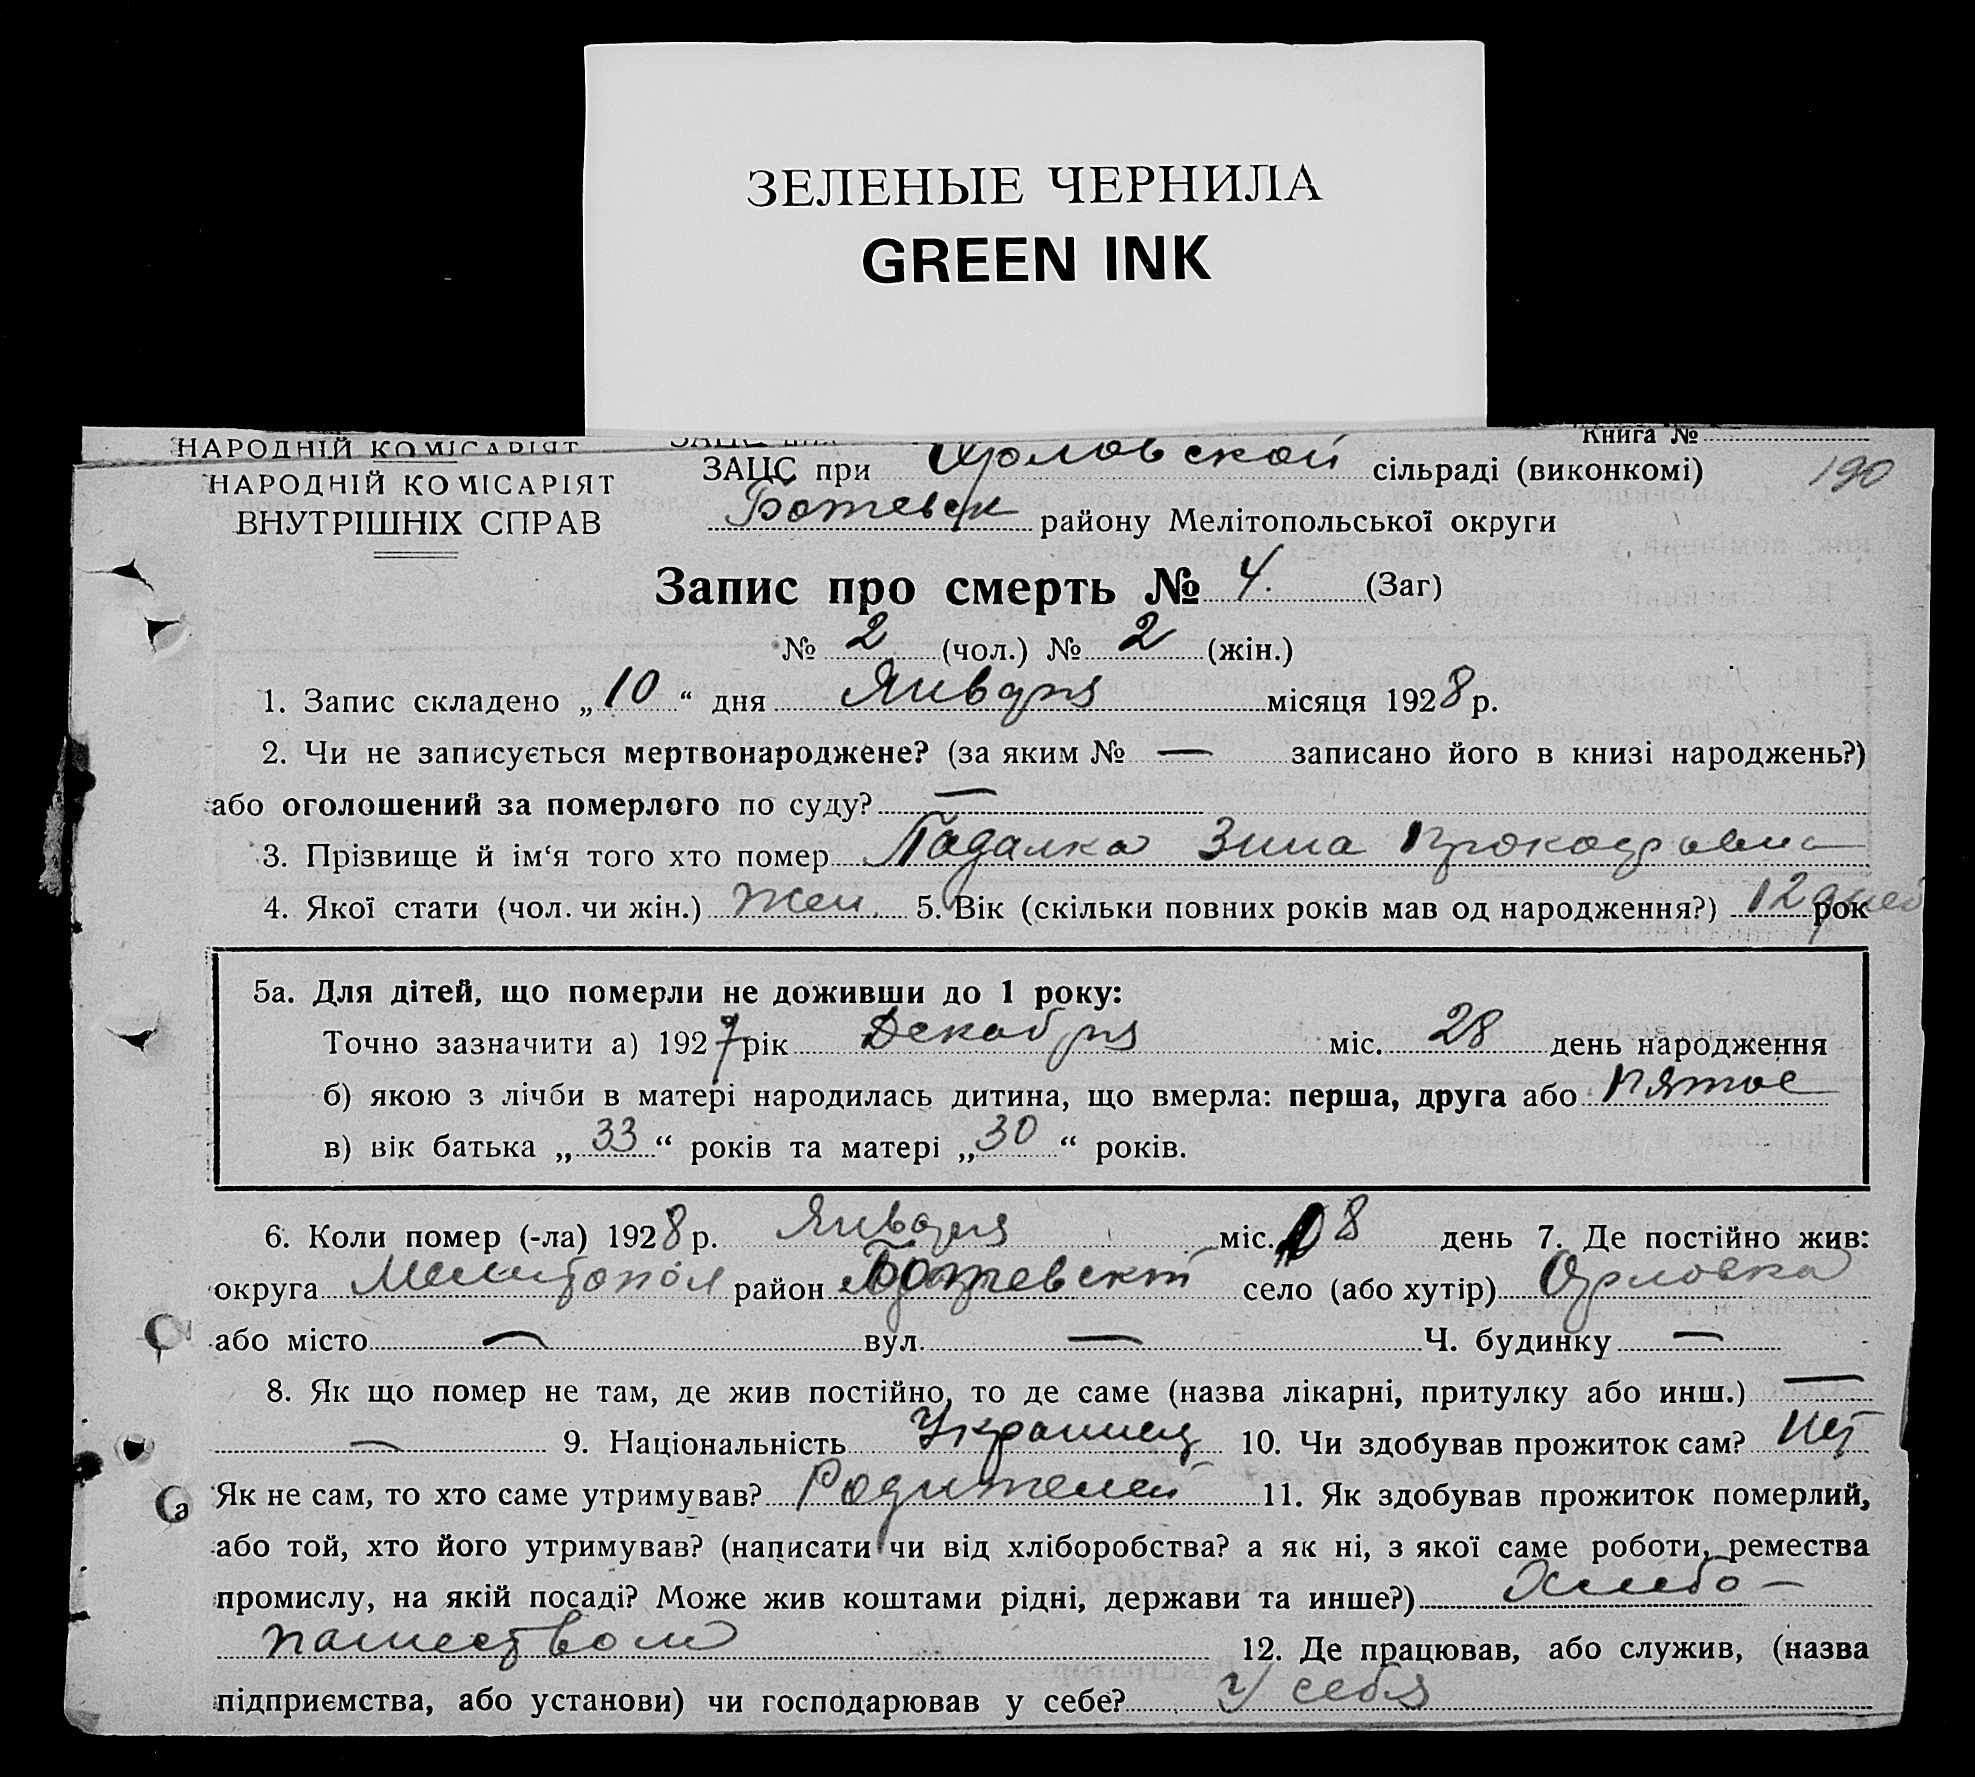 ЗЕЛЕНЫЕ ЧЕРНИЛА
GREEN INK
НАРОДНІЙ КОМІСАРІЯТ
Книга №
190
НАРОДНІЙ КОМІСАРІЯТ
ВНУТРІШНІХ СПРАВ
ЗАЦС при Орловской сільраді (виконкомі)
Ботевск району Мелітопольської округи
Запис про смерть № 4. (Заг)
№ 2 (чол.) № 2 (жін.)
1. Запис складено „10“ дня Января місяця 1928 р.
2. Чи не записується мертвонароджене? (за яким № — записано його в книзі народжень?)
або оголошений за померлого по суду? —
3. Прізвище й ім‘я того хто помер Падалка Зина
4. Якої стати (чол. чи жін.) Жен. 5. Вік (скільки повних років мав од народження?) 12 дней рок
5а. Для дітей, що померли не доживши до 1 року:
Точно зазначити а) 1927 рік Декабря міс. 28 день народження
б) якою з лічби в матері народилась дитина, що вмерла: перша, друга або пятое
в) вік батька „33“ років та матері „30“ років.
6. Коли помер (-ла) 1928 р. Января міс. 8 день 7. Де постійно жив:
округа Мелитопол район Ботевск село (або хутір) Орловка
або місто — вул. — Ч. будинку —
8. Як що помер не там, де жив постійно, то де саме (назва лікарні, притулку або инш.) —
— 9. Національність Украинец 10. Чи здобував прожиток сам? Нет
Як не сам, то хто саме утримував? Родителей 11. Як здобував прожиток померлий,
або той, хто його утримував? (написати чи від хліборобства? а як ні, з якої саме роботи, ремества
промислу, на якій посаді? Може жив коштами рідні, держави та инше?) Хлебо-
пашеством 12. Де працював, або служив, (назва
підприємства, або установи) чи господарював у себе? У себя